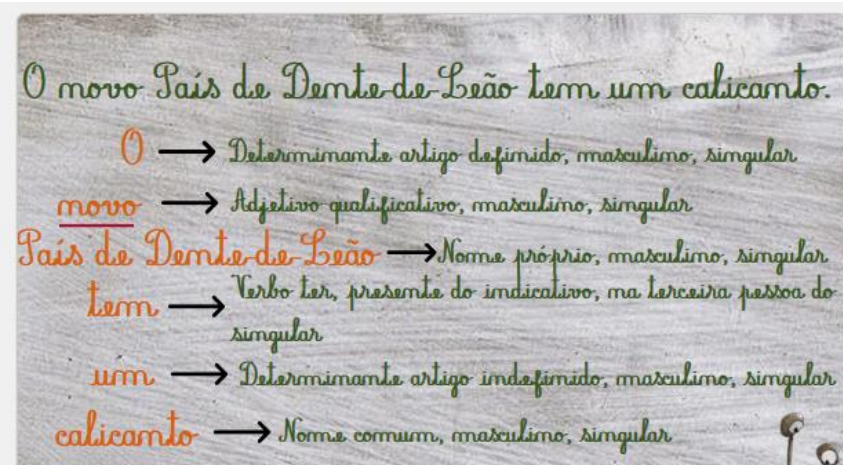 O novo País de Dente-de-Leão tem um calicanto.
O → Determinante artigo definido, masculino, singular
novo → Adjetivo qualificativo, masculino, singular
País de Dente-de-Leão → Nome próprio, masculino, singular
tem → Verbo ter, presente do indicativo, na terceira pessoa do
singular
um → Determinante artigo indefinido, masculino, singular
calicanto → Nome comum, masculino, singular